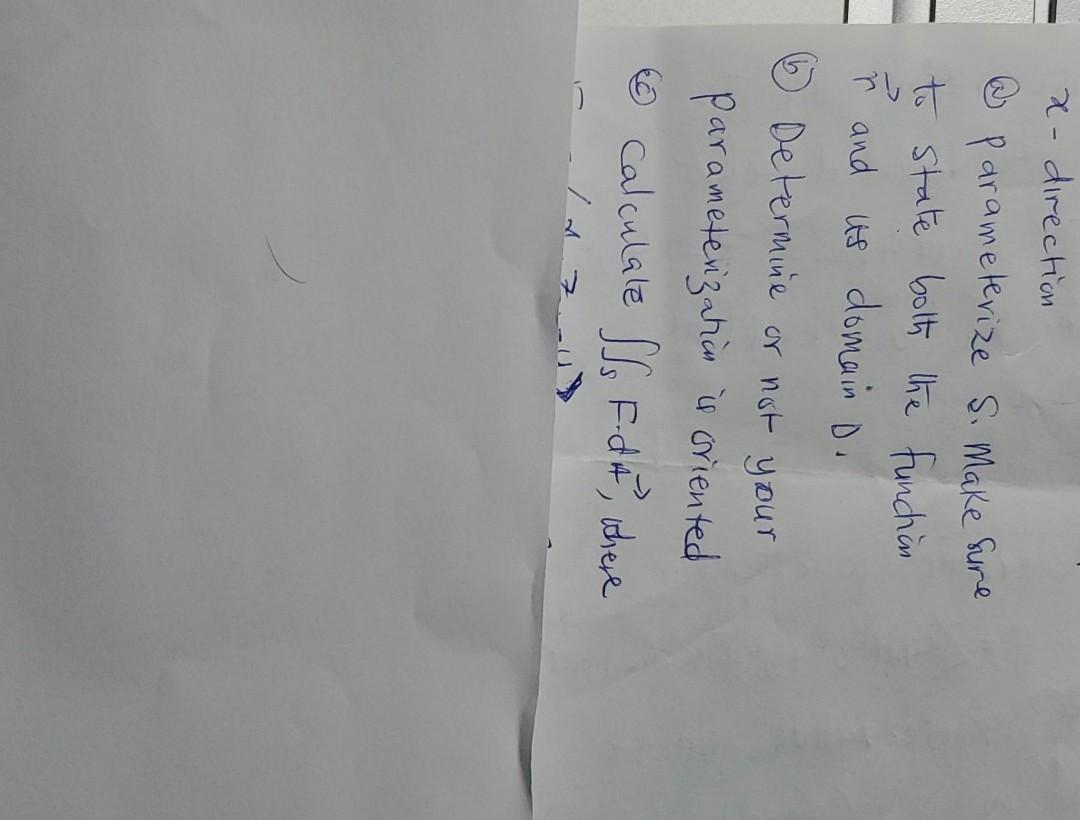 x - direction
ⓐ parameterize S. Make sure
to state both the function
r⃗ and its domain D.
ⓑ Determine or not your
parameterization is oriented
ⓒ Calculate ∬ₛ F·dA⃗, where